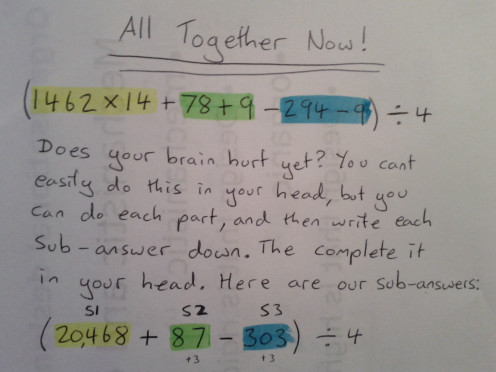 All Together Now!
(1462 × 14 + 78 + 9 - 294 - 9) ÷ 4
Does your brain hurt yet? You cant
easily do this in your head, but you
can do each part, and then write each
Sub-answer down. The complete it
in your head. Here are our sub-answers:
S1 S2 S3
(20,468 + 87 - 303) ÷ 4
+3 +3